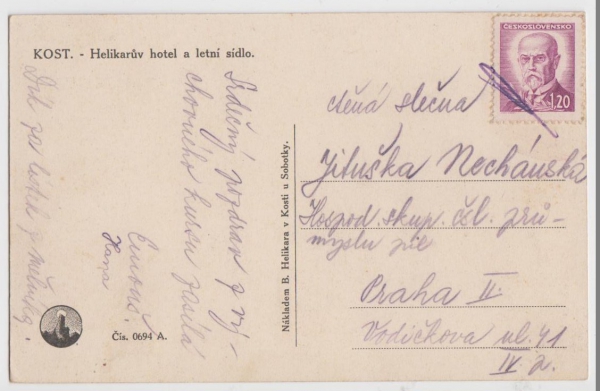 KOST. - Helikarův hotel a letní sídlo.
Srdečný pozdrav z vý-
chovného kursu zasílá
Hana
Dík za lístek z Mělníka.
Čís. 0694 A.
Nákladem B. Helikara v Kosti u Sobotky.
ČESKOSLOVENSKO
1.20
ctěná slečna
Jituška Nechánská
Hospod. skup. čsl. prů-
myslu
Praha II.
Vodičkova ul. 41
IV. p.